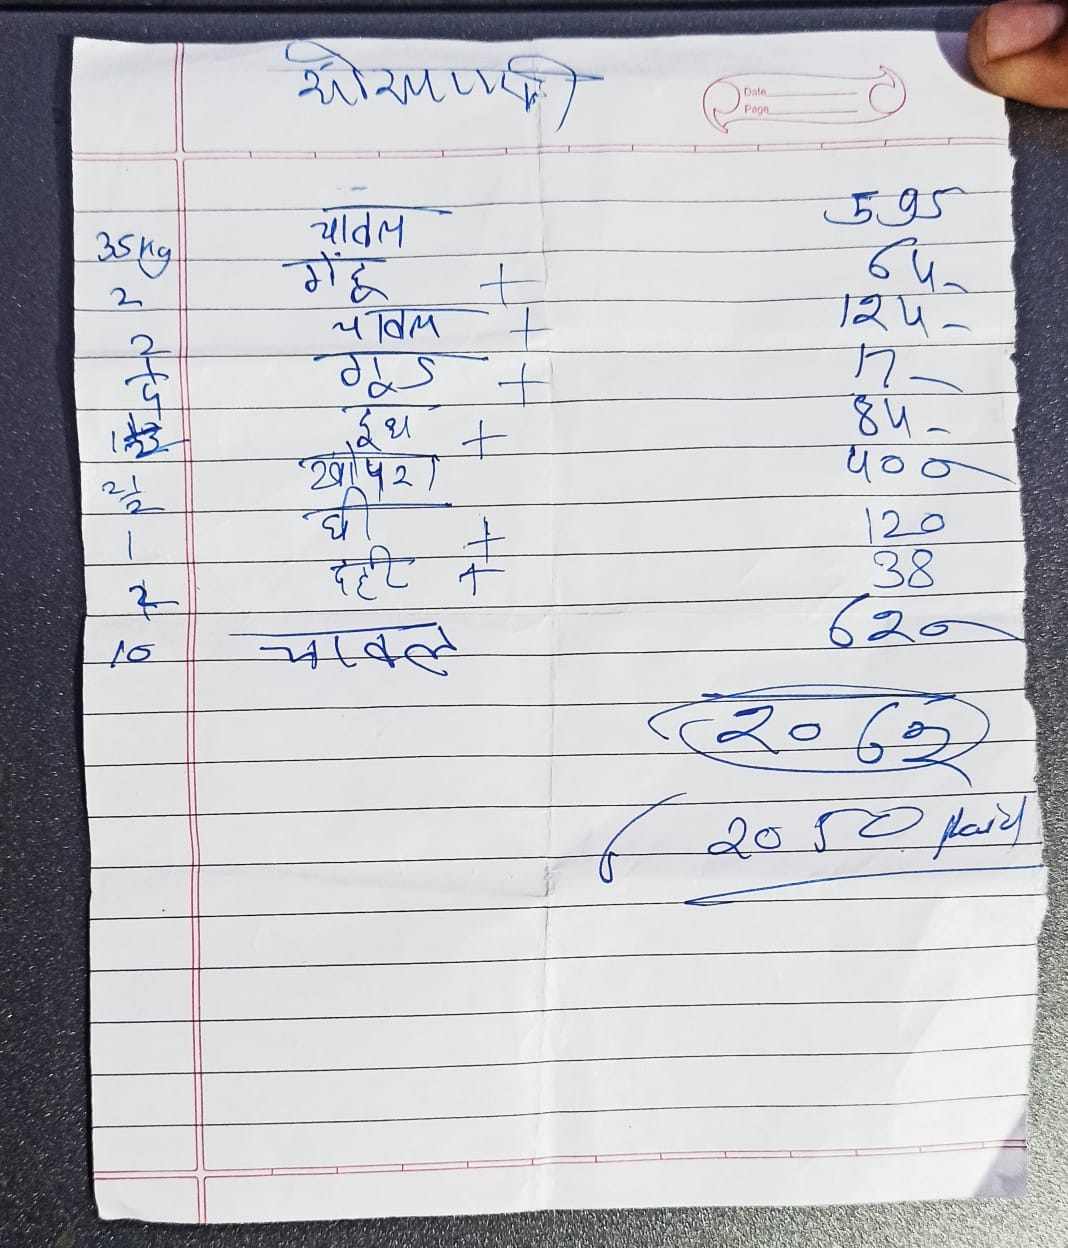 Date
Page
35kg चावल 595
2 गेंहू + 64
2 चावल + 124
1/4 गुड + 17
दूध + 84
2 1/2 खोपरा 400
1 घी + 120
2 दही + 38
10 चावल 620
2062
2050 paid